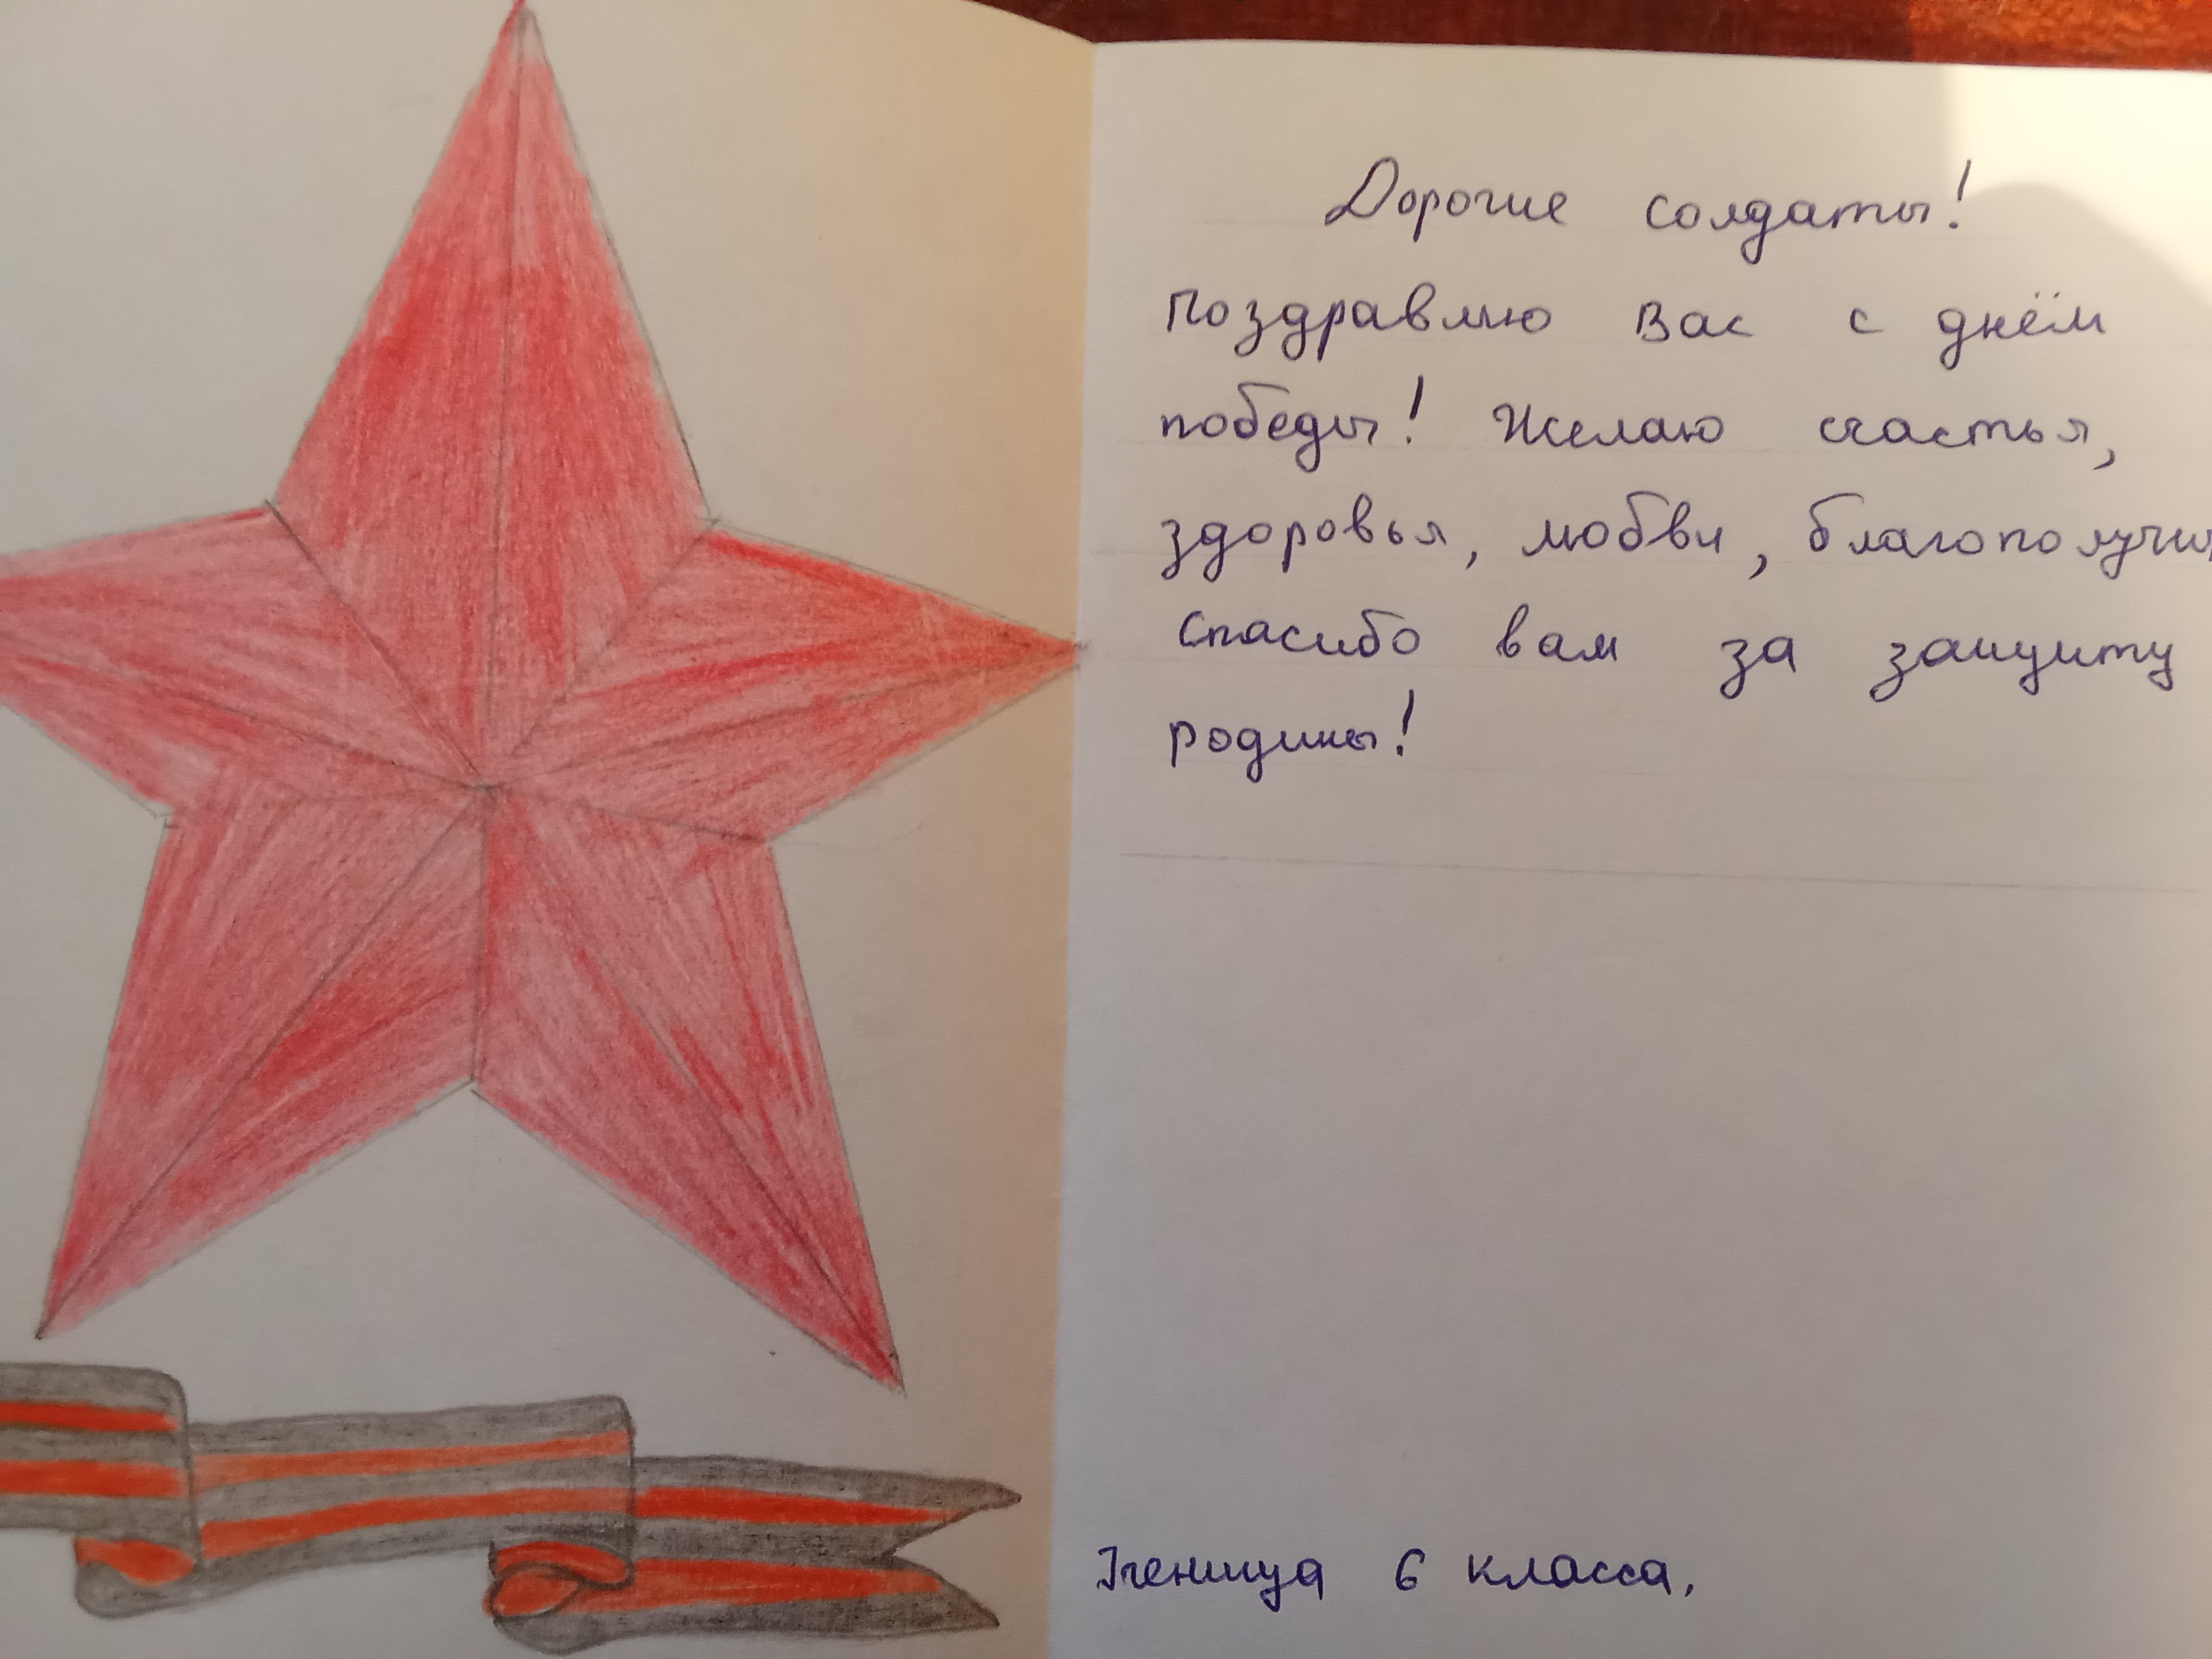 Дорогие солдаты!
Поздравляю Вас с днём
победы! Желаю счастья,
здоровья, любви, благополучия
Спасибо вам за защиту
родины!
Ученица 6 класса.